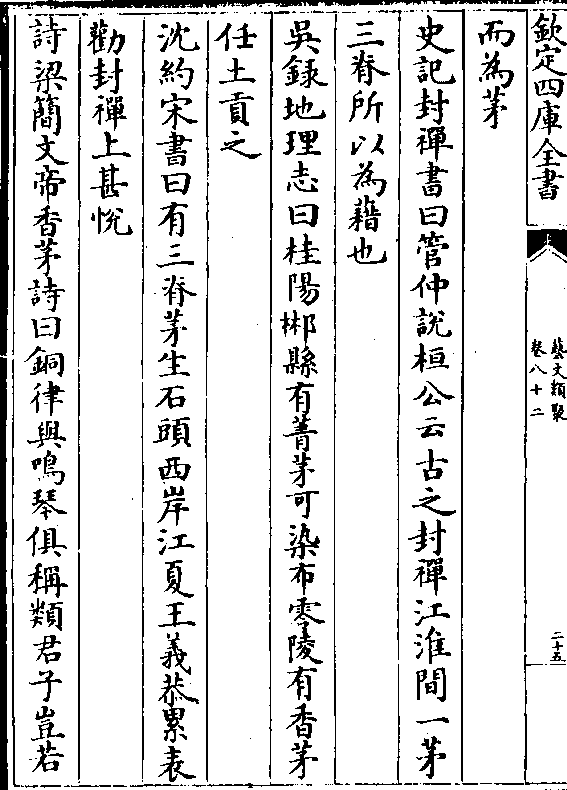 欽定四庫全書
藝文類聚
卷八十二
二十五
而為茅
史記封禪書曰管仲說桓公云古之封禪江淮間一茅
三脊所以為藉也
吳錄地理志曰桂陽郴縣有菁茅可染布零陵有香茅
任土貢之
沈約宋書曰有三脊茅生石頭西岸江夏王義恭累表
勸封禪上甚悅
詩梁簡文帝香茅詩曰銅律與鳴琴俱稱類君子豈若